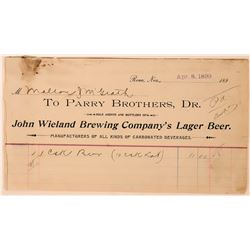 Reno, Nev., APR 8. 1899 189
M Mallon & McGrath
TO PARRY BROTHERS, DR.
SOLE AGENTS AND BOTTLERS OF
John Wieland Brewing Company's Lager Beer.
MANUFACTURERS OF ALL KINDS OF CARBONATED BEVERAGES.
Beer